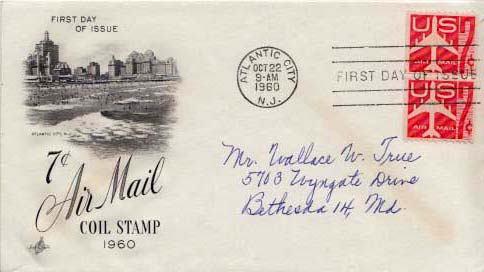 FIRST DAY
OF ISSUE
ATLANTIC CITY, N.J.
7¢
Air Mail
COIL STAMP
1960
ATLANTIC CITY
OCT 22
9-AM
1960
N.J.
FIRST DAY OF ISSUE
US
7¢
AIR MAIL
US
7¢
AIR MAIL
Mr. Wallace W. True
5703 Wyngate Drive
Bethesda 14, Md.